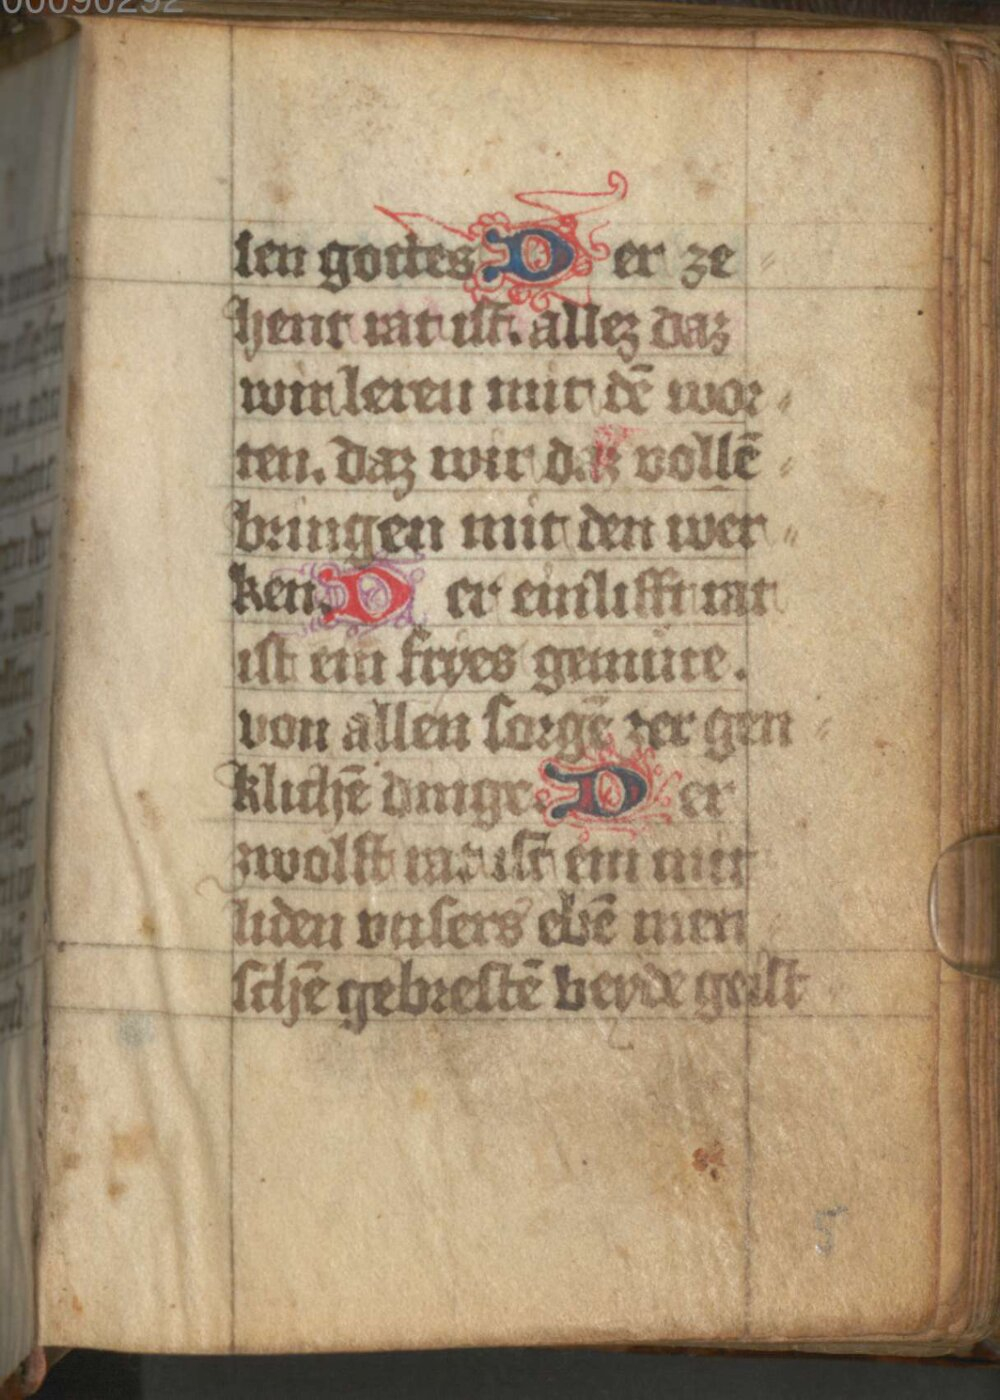 00090292
len gottes Der ze
hent rat ist. allez daz
wir leren mit dē wor
ten. daz wir daz vollē
bringen mit den wer
ken. Der einlifft rat
ist ein fryes gemüte.
von allen sorgē zer gen
klichē dinge. Der
zwolfft rat ist ein mit
liden vnsers ebē men
schē gebrestē beyde geist
5